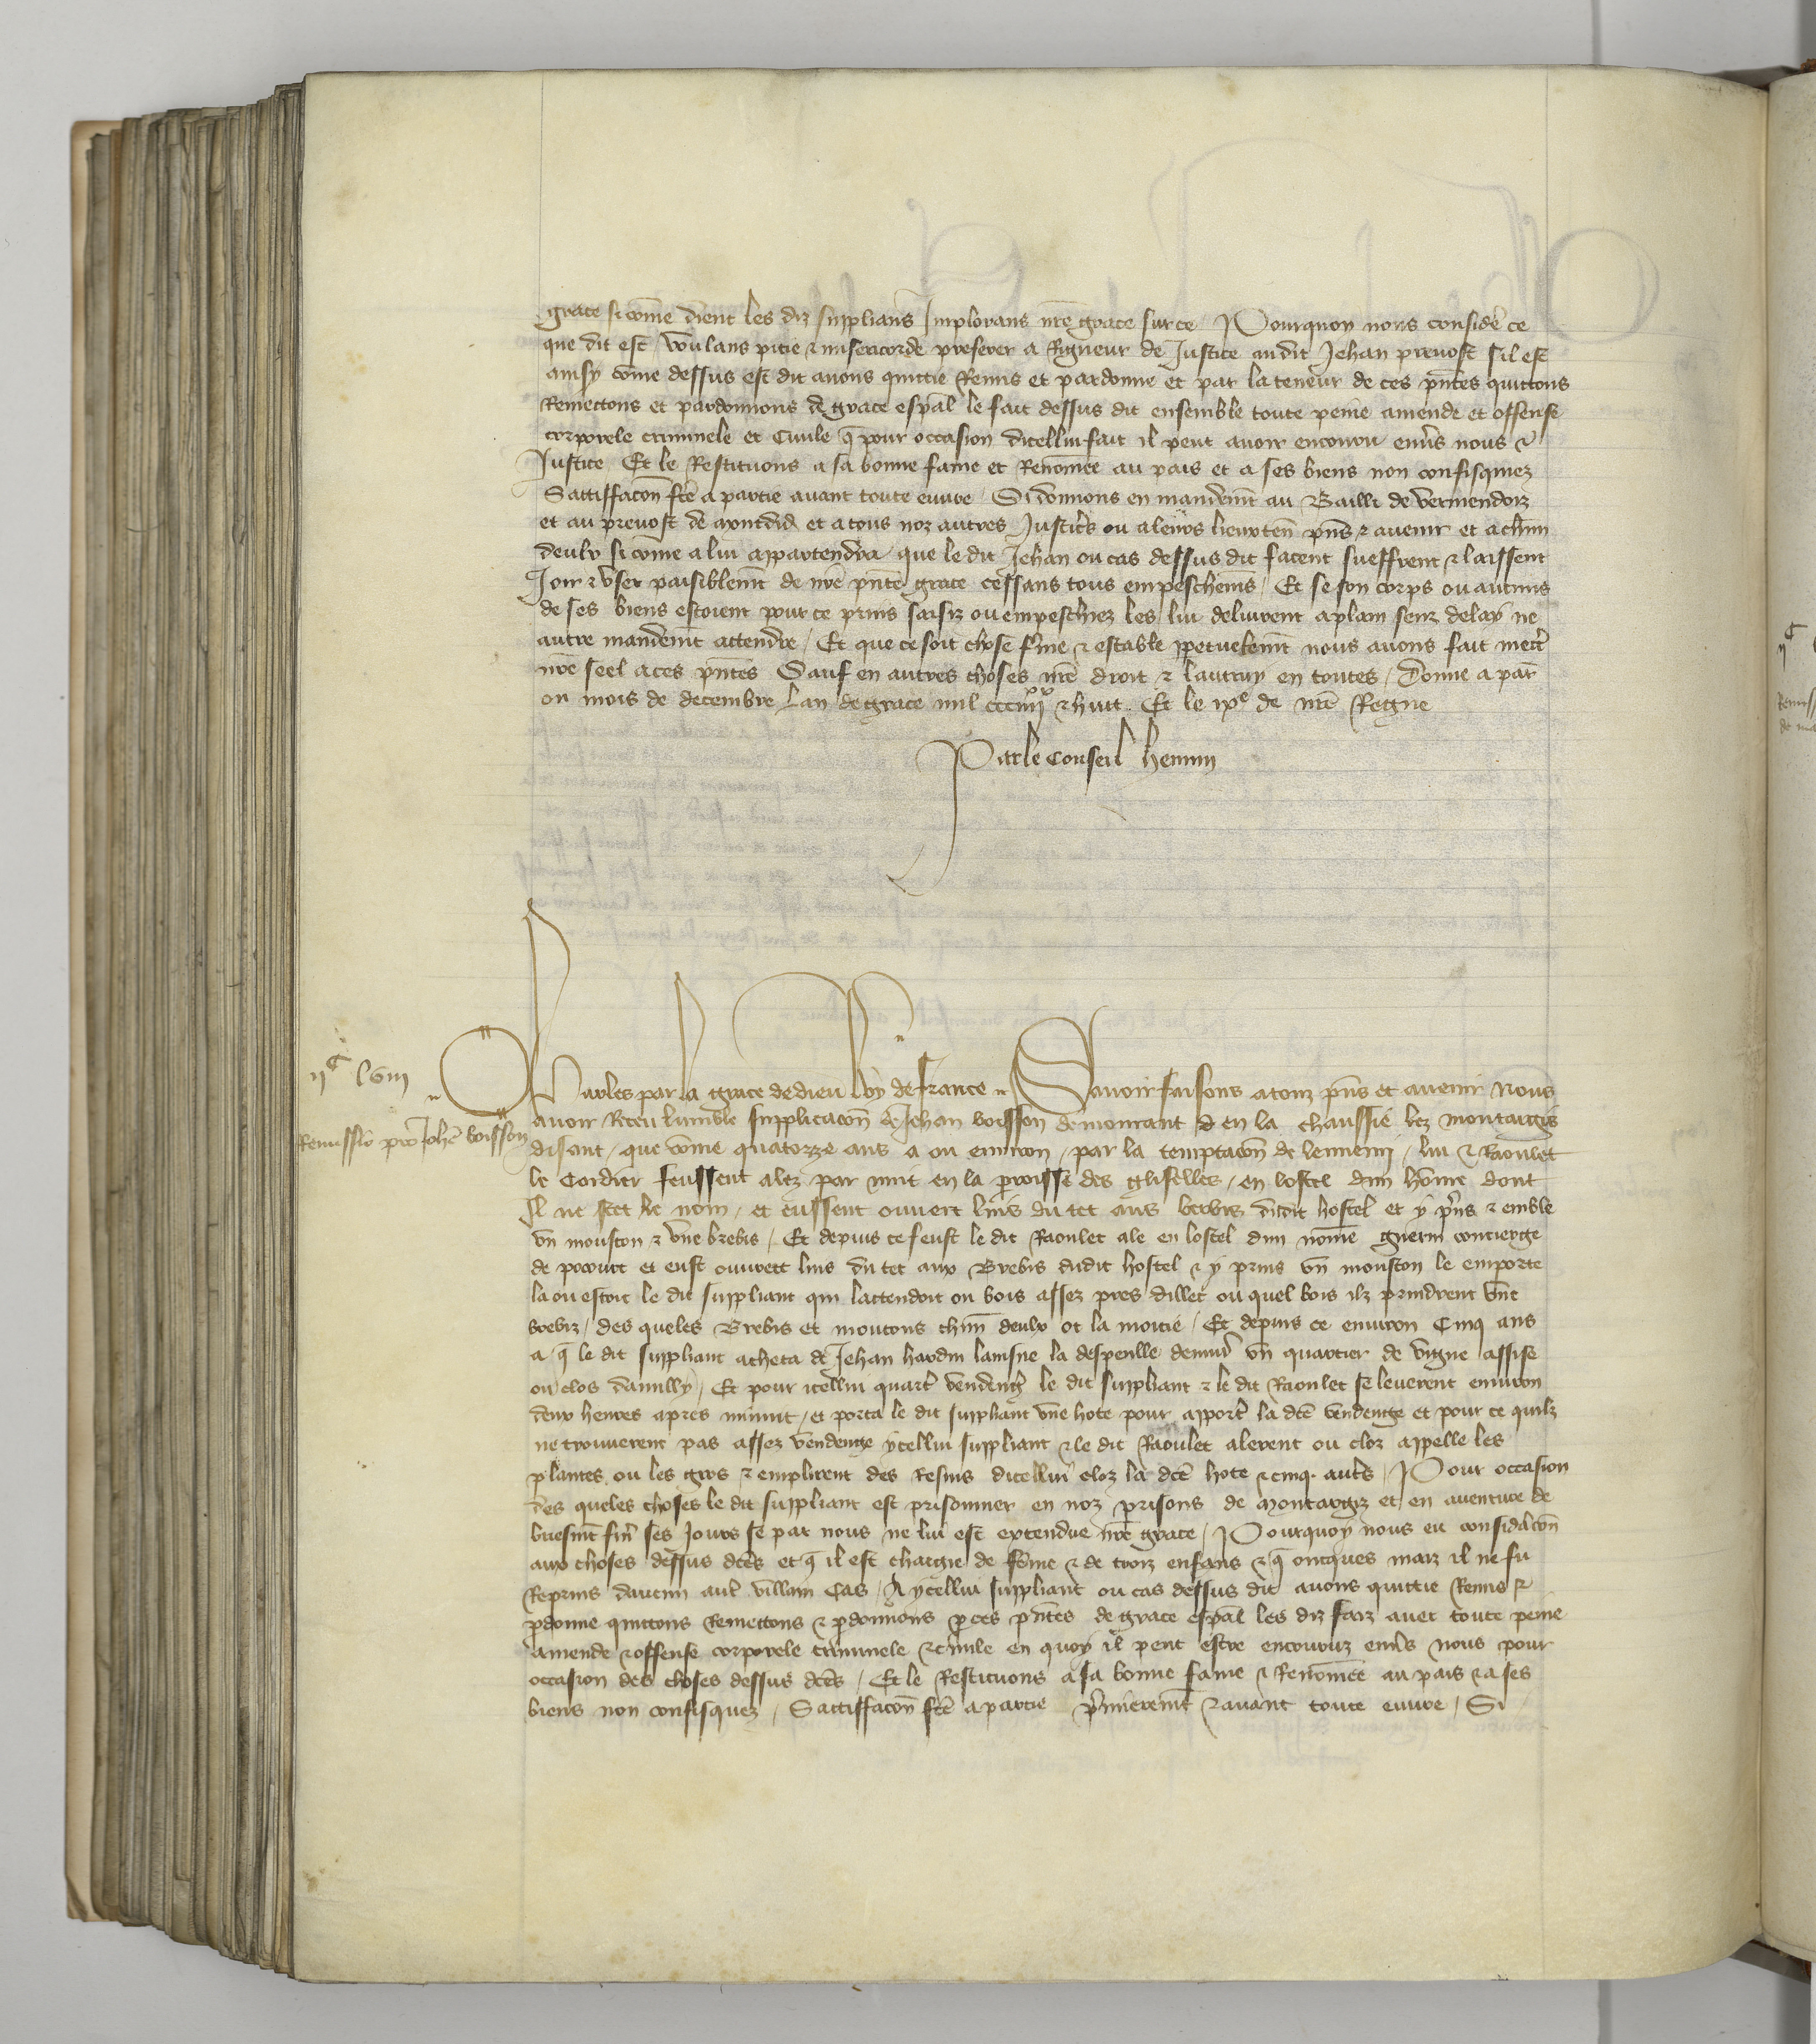 grace si cõme dient les diz supplians Implorans nr̃e grace sur ce Pourquoy nous consideré ce
que dit est voulans pitie & misericorde preferer a Rigueur de Justice audit Jehan prevost sil est
ainsy cõme dessus est dit avons quittie Remis et pardonne et par la teneur de ces pñtes quittons
Remettons et pardonnons de grace esp̃al le fait dessus dit ensemble toute peine amende et offense
corporele criminele et Civile q̃ pour occasion dicellui fait il peut avoir encouru env̾s nous &
Justice Et le Restituons a sa bonne fame et Renõmee au pais et a ses biens non confisquiez
Satiffacõn fc̃e a partie avant toute euvre Si donnons en mandem̃t au Bailli de vermendoiz
et au prevost de Montdid et a tous noz autres Justic̾s ou a leurs lieuxten̄ pñs & avenir et a chũn
deulx si cõme a lui appartendra que le dit Jehan ou cas dessus dit facent sueffrent & laissent
Joir & user paisiblem̃t de nr̃e pñte grace cessans tous empeschem̃s / Et se son corps ou aucuns
de ses biens estoient pour ce prins saisiz ou empeschiez les lui delivrent a plain senz delay ne
autre mandem̃t attendre / Et que ce soit chose ferme & estable ꝑpetuelem̃t nous avons fait mectr̾
nr̃e seel a ces pñtes Sauf en autres choses nr̃e droit & lautruy en toutes / Donne a par̃
ou mois de decembre Lan de grace mil ccc iiii xx & huit Et le ixe de nr̃e Regne
Par le Conseil hemin
Charles par la grace de dieu Roy de france Savoir faisons a touz pñs et avenir Nous
iic lviii
avoir Receu lumble supplicacõn de Jehan boisson demourant en la chaussie lez montargis
Remissio pro Joh̃e boisson
disant / que cõme quatorze ans a ou environ / par la temptacõn de lennemi / lui & Raoulet
le Cordier feussent alez par nuit en la ꝑroisse des gliselles / en lostel dun hõme dont
Il ne scet le nom / et eussent ouvert luis du tet aus brebis dudit hostel et y pr̾ns & emble
un mouston & une brebis / Et depuis ce feust le dit Raoulet ale en lostel dun nõme guerin concierge
de et eust ouvert luis du tet aux Brebis dudit hostel & y prins un mouston le emporte
la ou estoit le dit suppliant qui lattendoit ou bois assez pres dillec ou quel bois ilz prindrent une
brebiz / des queles Brebis et moutons chũn deulx ot la moitie / Et depuis ce environ Cinq ans
a q̃ le dit suppliant acheta de Jehan hardin lainsne la despeulle demi un quartier de vigne assise
ou clos damilly / Et pour icellui quart̾ vendeng̾ le dit suppliant & le dit Raoulet se leverent environ
deux heures apres minuit / et porta le dit suppliant une hote pour apport̾ la dc̃e vendenge et pour ce quilz
ne trouverent pas assez vendenge ycellui suppliant & le dit Raoulet alerent ou cloz appelle les
plantes ou les gros & emplirent des Resins dicellui cloz la dc̃e hote & cinq aut̾s / Pour occasion
des queles choses le dit suppliant est prisonnier en noz prisons de Montargiz et en aventure de
briefm̃t fin̾ ses Jours se par nous ne lui est extendue nr̃e grace / Pourquoy nous eu consid̾acõn
aux choses dessus dc̃es et q̃ il est chargie de fẽme & de troiz enfans & q̃ oncques maiz il ne fu
Reprins daucun aut̾ villain Cas / A ycellui suppliant ou cas dessus dit avons quittie Remis &
ꝑdonne quittons Remettons & ꝑdonnons ꝑ ces pñtes de grace esp̃al les diz faiz avec toute peine
amende & offense corporele criminele & civile en quoy il peut estre encouruz env̾s nous pour
occasion des choses dessus dc̃es / Et le Restituons a sa bonne fame & Renõmee au pais & a ses
biens non confisquez / Satiffacõn fc̃e a partie p̾mierem̃t & avant toute euvre / Si